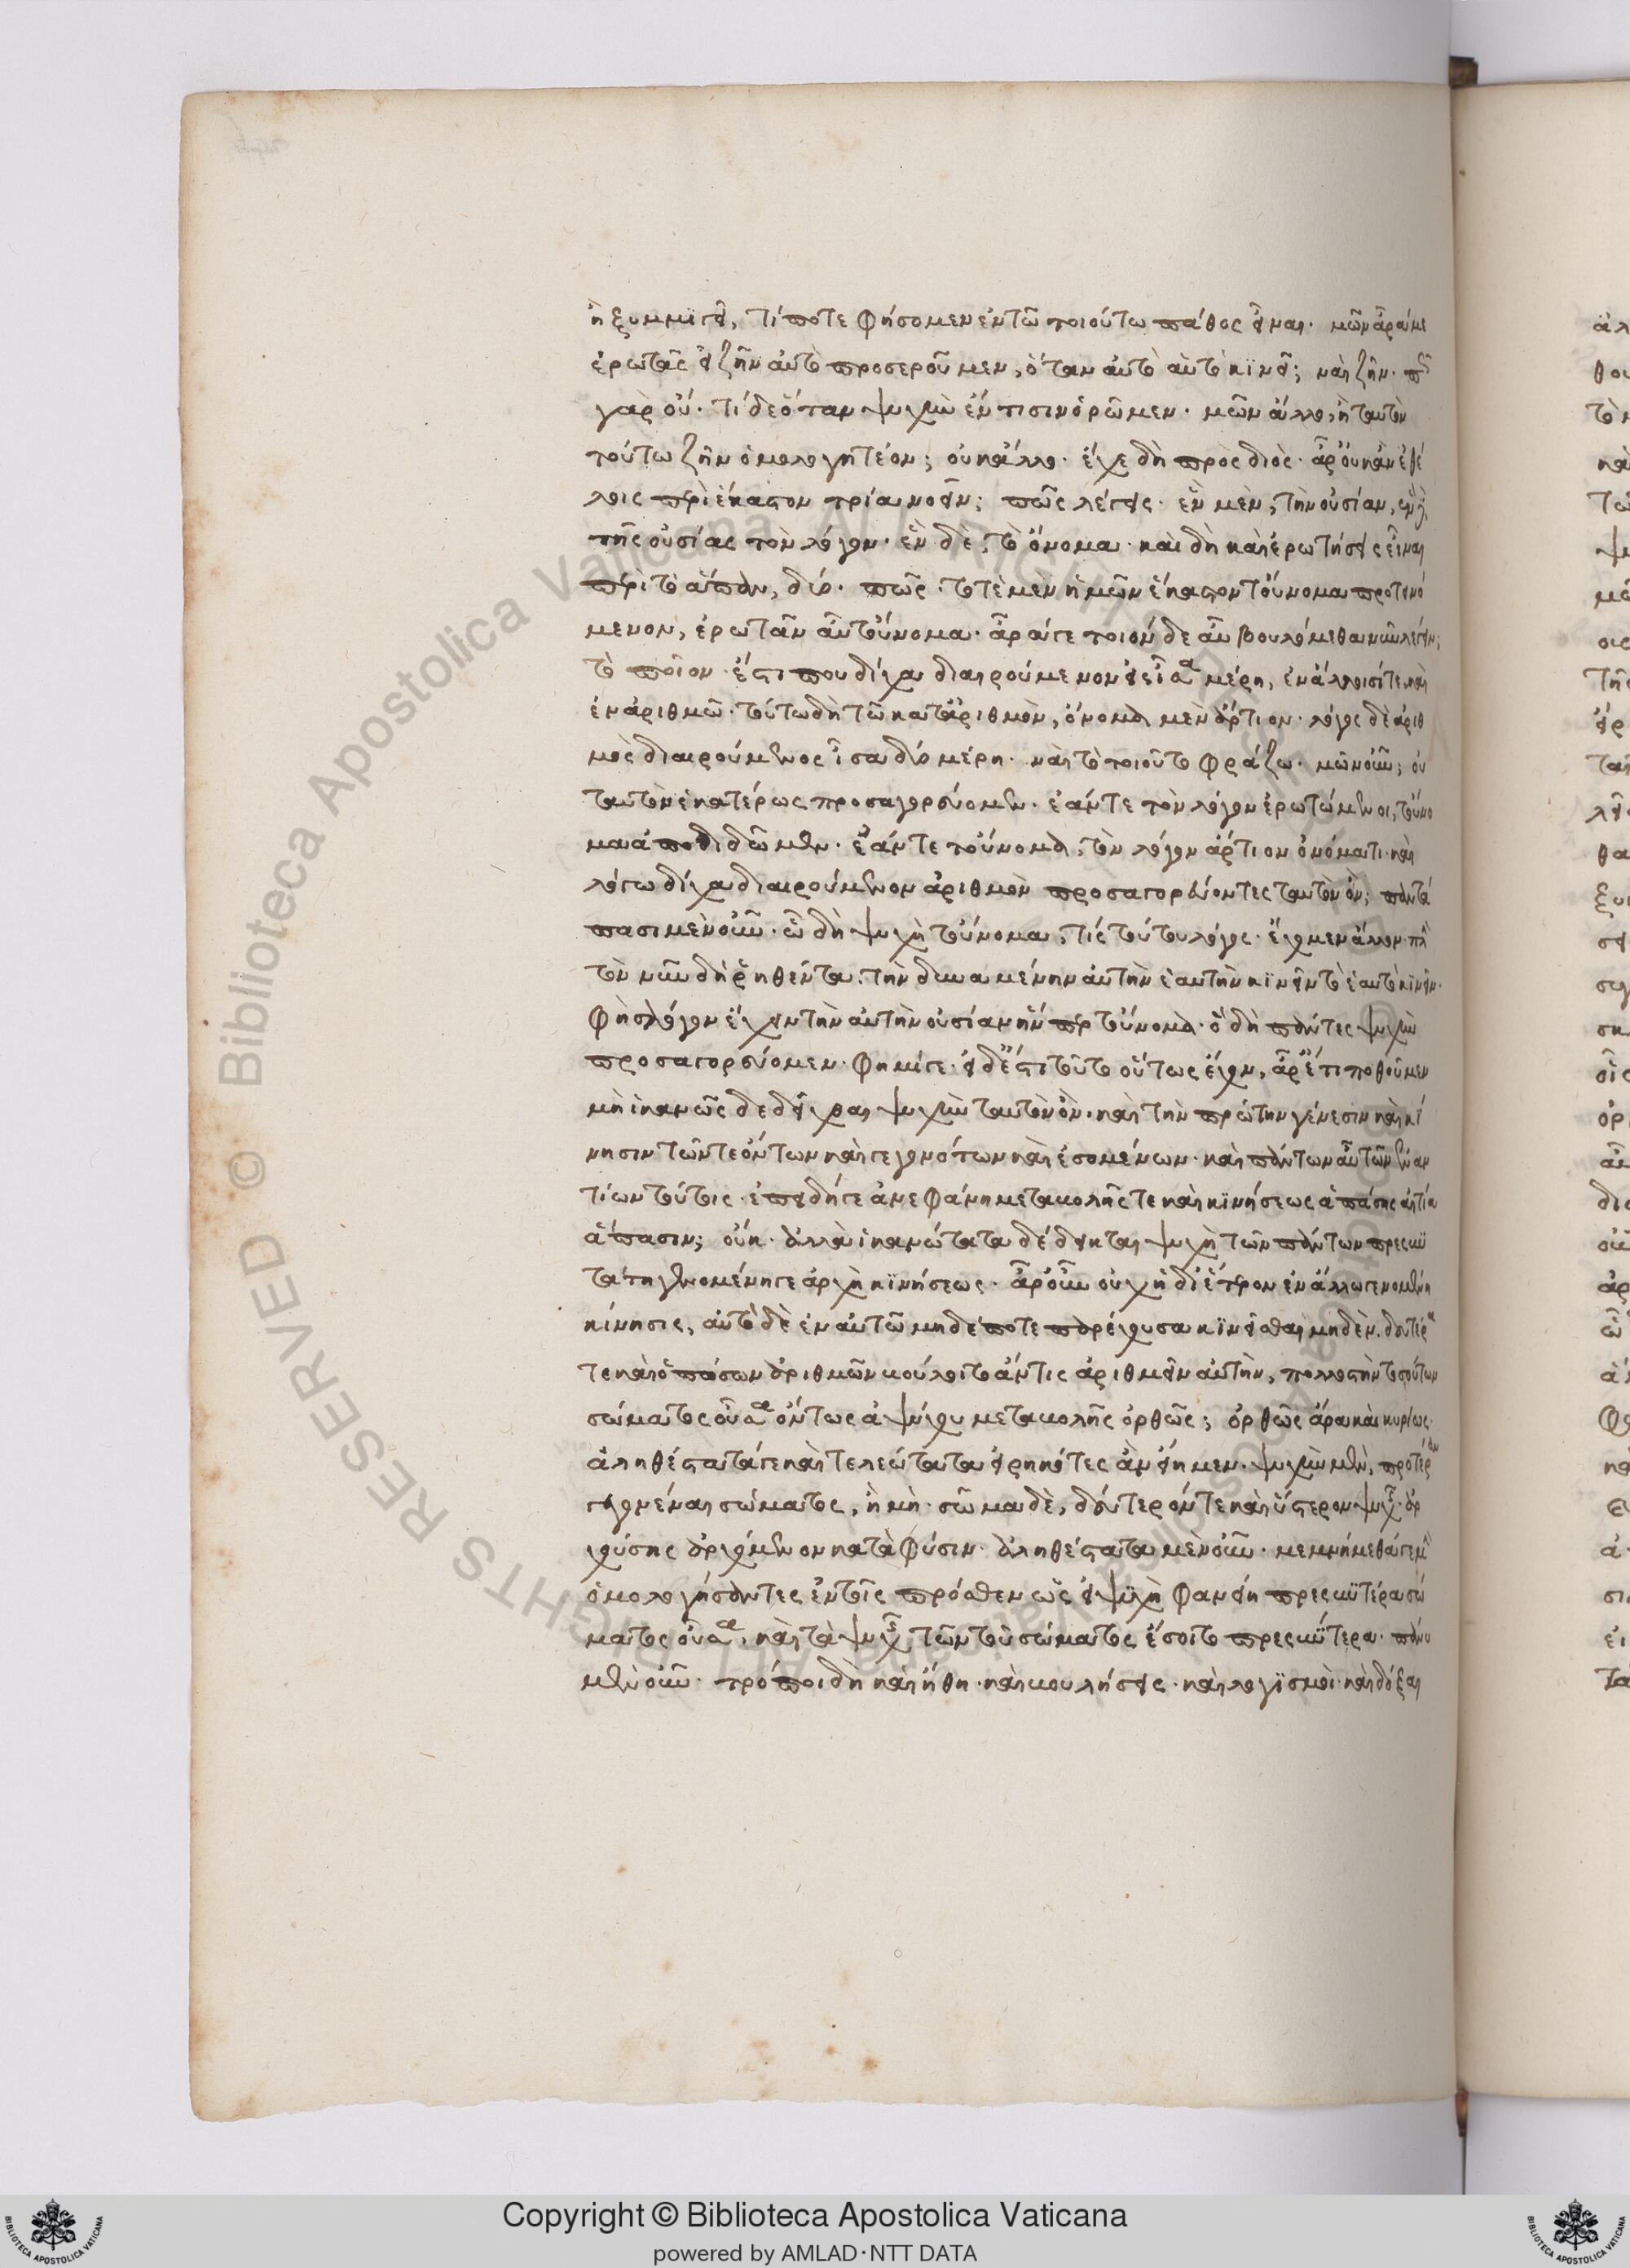 ἢ ξυμμιγεῖ, τί ποτε φήσομεν ἐν τῶ τοιούτω πάθος εἶναι· μῶν ἆρά με
ἐρωτᾶς εἰ ζῆν αὐτὸ προσεροῦμεν, ὅταν αὐτὸ αὑτὸ κινεῖ; ναὶ ζῆν· πῶς
γὰρ οὔ· τί δε ὅταν ψυχὴν ἔν τισιν ὁρῶμεν· μῶν ἄλλο, ἢ ταυτὸν
τούτω ζῆν ὁμολογητέον; οὐκ ἄλλο· ἔχε δὴ πρὸς διός· ἆρ' οὐκ ἂν ἐθέ
λοις περὶ ἕκαστον τρία νοεῖν; πῶς λέγεις· ἓν μὲν, τὴν οὐσίαν, ἓν δὲ,
τῆς οὐσίας τὸν λόγον· ἓν δὲ, τὸ ὄνομα· καὶ δὴ καὶ ἐρωτήσεις εἶναι
περὶ τὸ ἅπαν, δύο· πῶς· τοτὲ μὲν ἡμῶν ἕκαστον τοὔνομα προτεινό
μενον, ἐρωτᾶν ἆρά γε τοιόνδε αὖ βουλόμεθα νῦν λέγειν;
τὸ ποῖον· ἔστι που δίχα διαιρούμενον εἰς ἴσα μέρη, ἐν ἄλλοις τε καὶ
ἐν ἀριθμῶ· τούτω δὴ τῶ κατ' ἀριθμὸν, ὄνομα μὲν ἄρτιον· λόγος δὲ ἀριθ
μὸς διαιρούμενος ἴσα δύο μέρη· ναὶ τὸ τοιοῦτο φράζω· μῶν οὖν; οὐ
ταυτὸν ἑκατέρως προσαγορεύομεν· ἐάν τε τὸν λόγον ἐρωτώμενοι, τοὔνο
μα ἀποδιδῶμεν· ἐάν τε τοὔνομα, τὸν λόγον ἄρτιον ὀνόματι· καὶ
λόγω δίχα διαιρούμενον ἀριθμὸν προσαγορεύοντες ταυτὸν ὄν; παντά
πασι μὲν οὖν· ὧ δὴ ψυχὴ τοὔνομα, τίς τούτου λόγος· ἔχομεν ἄλλον πλὴν
τὸν νῦν δὴ ῥηθέντα· τὴν δυναμένην αὐτὴν ἑαυτὴν κινεῖν τὸ ἑαυτὸ κινεῖν·
φὴς λόγον ἔχειν τὴν αὐτὴν οὐσίαν ἥν περ τοὔνομα· ὃ δὴ πάντες ψυχὴν
προσαγορεύομεν· φημί γε· εἰ δ' ἔστι τοῦτο οὕτως ἔχον, ἆρ' ἔτι ποθοῦμεν
μὴ ἱκανῶς δεδεῖχθαι ψυχὴν ταυτὸν ὂν· καὶ τὴν πρώτην γένεσιν καὶ κί
νησιν τῶν τε ὄντων καὶ γεγονότων καὶ ἐσομένων· καὶ πάντων αὖ τῶν ἐναν
τίων τούτοις· ἐπειδή γε ἀνεφάνη μεταβολῆς τε καὶ κινήσεως ἁπάσης αἰτία
ἅπασιν; οὔκ· ἀλλὰ ἱκανώτατα δέδεικται ψυχὴ τῶν πάντων πρεσβυ
τάτη γενομένη γε ἀρχὴ κινήσεως· ἆρ' οὖν οὐχ ἡ δι' ἕτερον ἐν ἄλλω γενομένη
κίνησις, αὐτὸ δὲ ἐν αὑτῶ μηδέποτε παρέχουσα κινεῖσθαι μηδὲν· δευτέρα
τε καὶ ὁπόσων ἀριθμῶν βούλοιτο ἄν τις ἀριθμεῖν αὐτὴν, πολλοστὴν τοσούτων
σώματος οὖσα ὄντως ἀψύχου μεταβολῆς ὀρθῶς; ὀρθῶς ἄρα καὶ κυρίως·
ἀληθέστατά γε καὶ τελεώτατα εἰρηκότες ἂν εἶημεν· ψυχὴν μὲν, προτέραν
γεγονέναι σώματος, ἡμῖν· σῶμα δὲ, δεύτερόν τε καὶ ὕστερον ψυχῆς· ἀρ
χούσης ἀρχόμενον κατὰ φύσιν· ἀληθέστατα μὲν οὖν· μεμνήμεθά γε μὴν
ὁμολογήσαντες ἐν τοῖς πρόσθεν ὡς εἰ ψυχὴ φανείη πρεσβυτέρα σώ
ματος οὖσα, καὶ τὰ ψυχῆς τῶν τοῦ σώματος ἔσοιτο πρεσβύτερα· πάνυ
μὲν οὖν· τρόποι δὴ καὶ ἤθη· καὶ βουλήσεις· καὶ λογισμοὶ· καὶ δόξαι